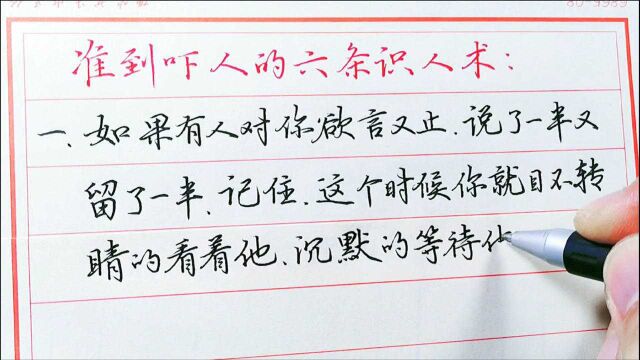 准到吓人的六条识人术:
一、如果有人对你欲言又止、说了一半又
留了一半、记住、这个时候你就目不转
睛的看着他、沉默的等待他